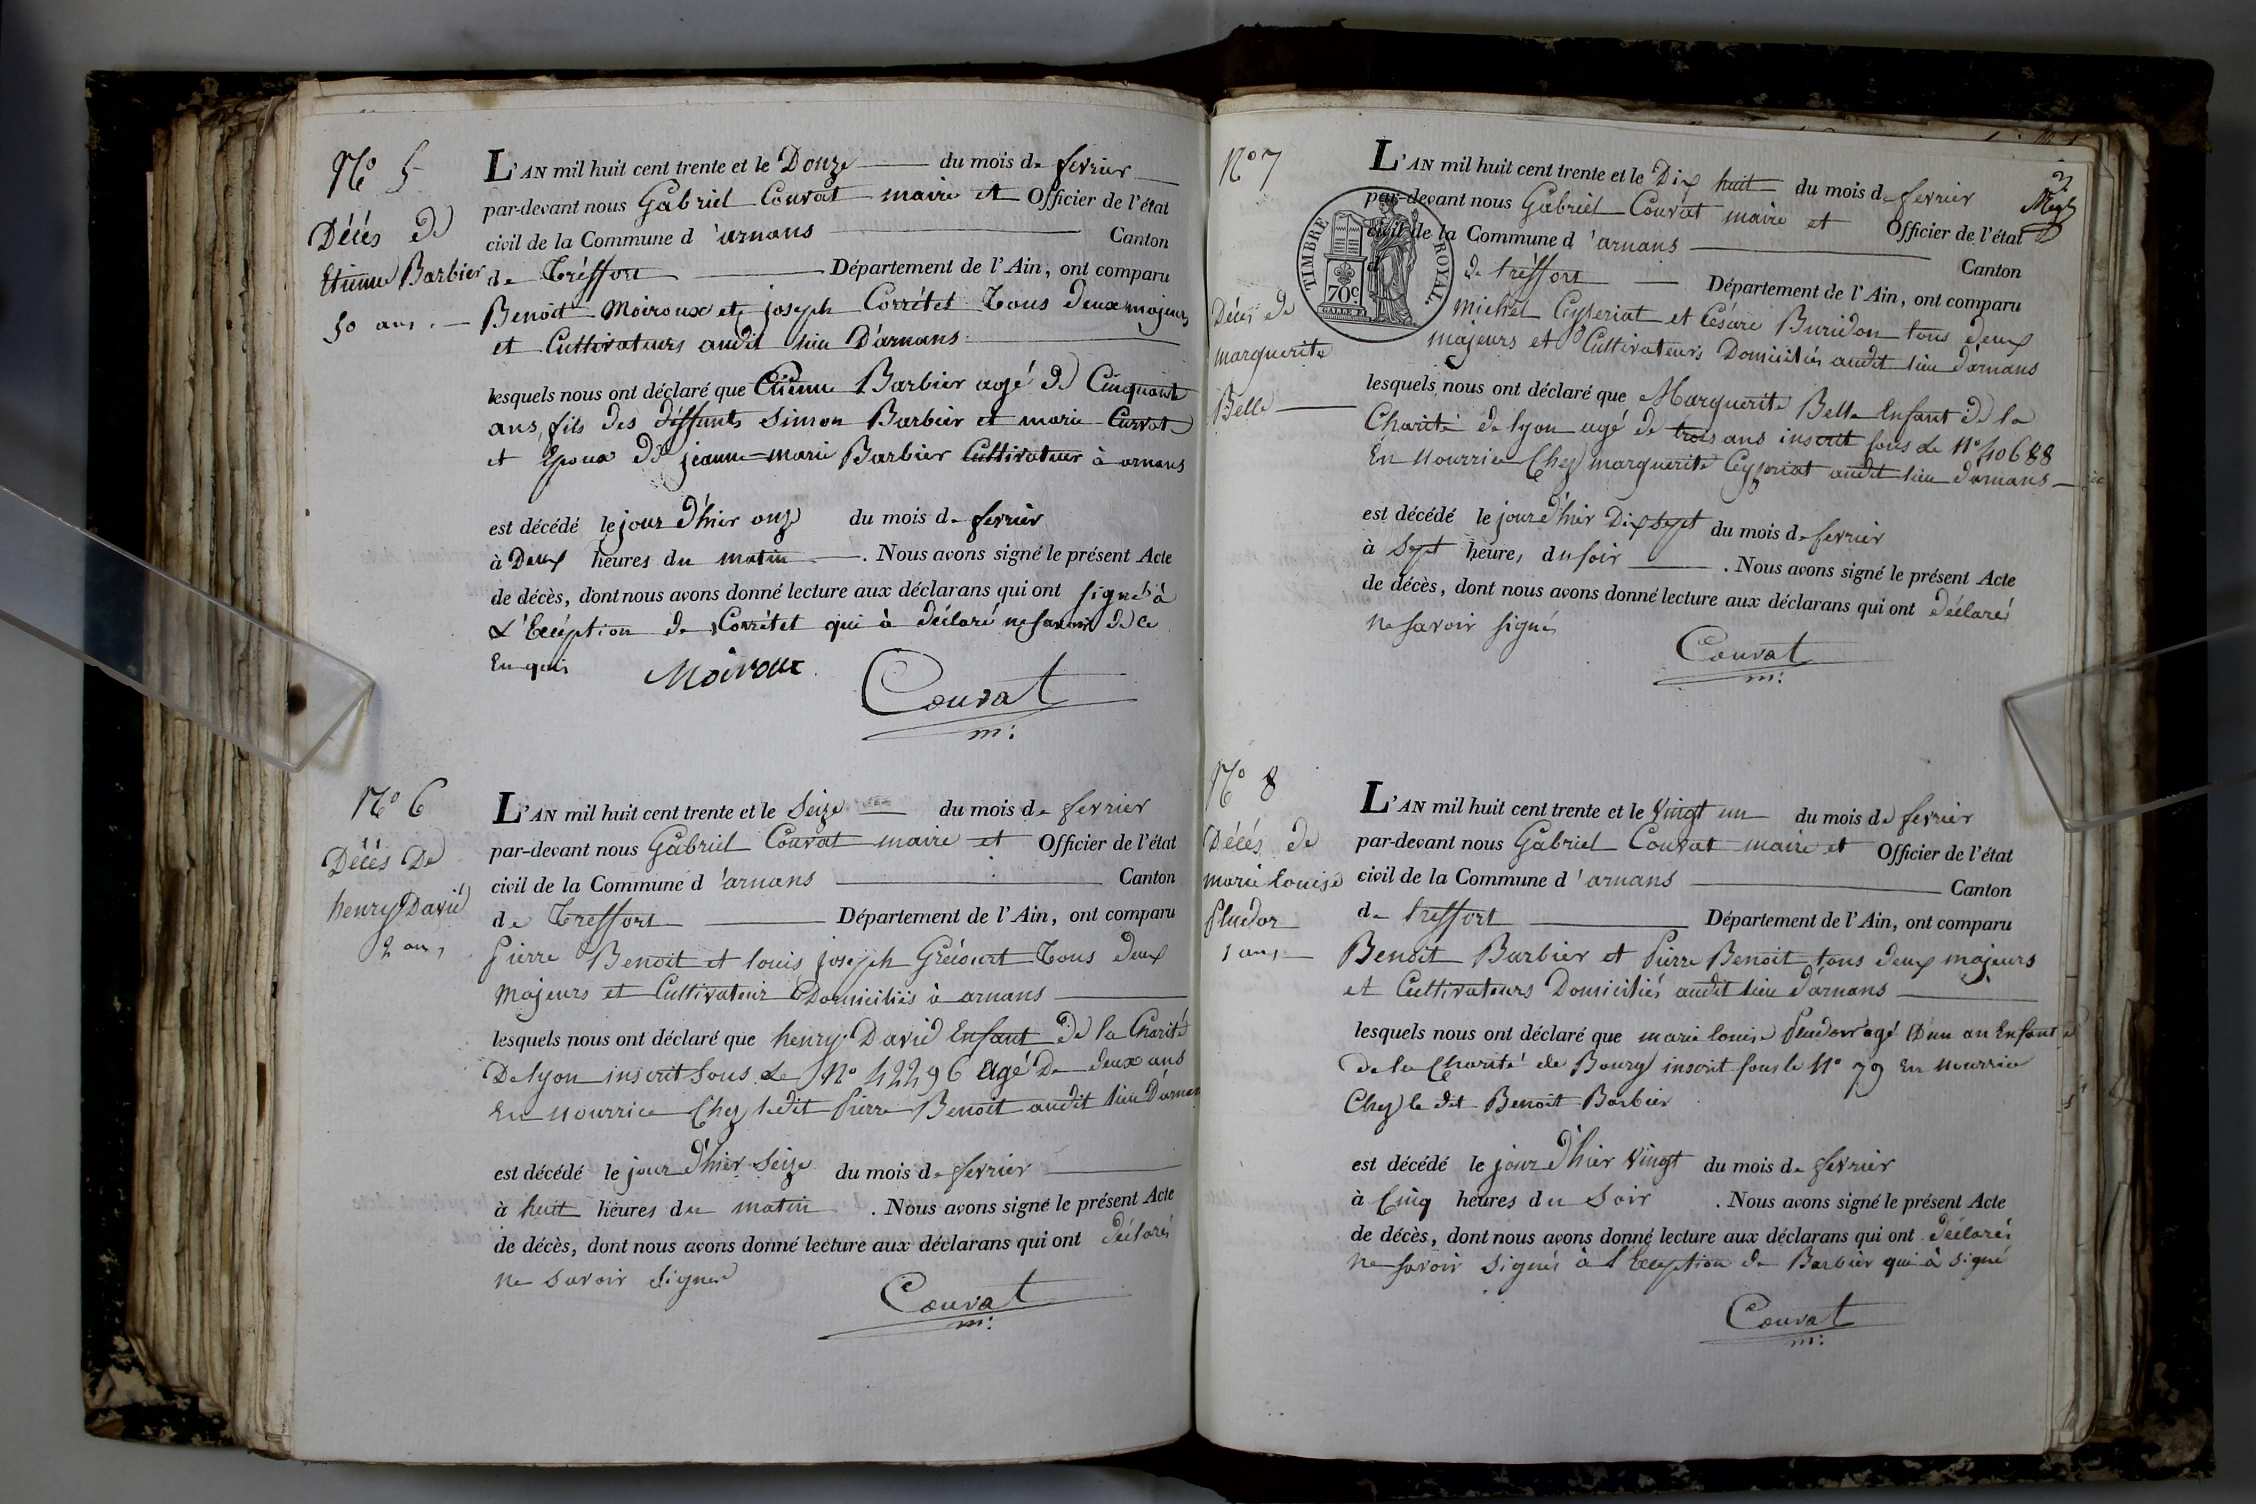 N° 5
Décés de
Etienne Barbier
50 ans. —
L'AN mil huit cent trente et le Donze — du mois de fevrier —
par-devant nous Gabriel Couvat maire et Officier de l'état
civil de la Commune d 'arnans — Canton
de Tréffort — Département de l'Ain, ont comparu
Benoit Moiroux et joseph Corrétet Tous deux majeurs
et Cultivateurs audit lieu D'arnans —
lesquels nous ont déclaré que Etienne Barbier agé de Cinquante
ans, fils des déffunts Simon Barbier et marie Curvat
et Epoux de jeanne-marie Barbier Cultivateur à arnans
est décédé le jour d'hier onze du mois de fevrier
à Deux heures du matin —. Nous avons signé le présent Acte
de décès, dont nous avons donné lecture aux déclarans qui ont signé à
L'Exéption de Corrétet qui à déclaré ne savoir de ce
Enquis
Moiroux
Couvat
m:
N° 6
Décés De
henry David
2 ans,
L'AN mil huit cent trente et le Seize — du mois de fevrier
par-devant nous Gabriel Couvat maire et Officier de l'état
civil de la Commune d 'arnans — Canton
de Treffort — Département de l'Ain, ont comparu
Pierre Benoit et louis joseph Grécourt Tous deux
Majeurs et Cultivateur Domiciliés à arnans —
lesquels nous ont déclaré que henry David Enfant de la Charité
De lyon inscrit Sous Le N° 42296 Agé De deux ans
En Nourrice Chez ledit Pierre Benoit audit lieu D'arnans
est décédé le jour d'hier Seize du mois de fevrier —
à huit heures du matin . Nous avons signé le présent Acte
de décès, dont nous avons donné lecture aux déclarans qui ont déclaré
ne savoir signer
Couvat
m:
N° 7
Décés de
marguerite
Belle —
TIMBRE ROYAL.
70c
L'AN mil huit cent trente et le Dix huit du mois de fevrier
par-devant nous Gabriel Couvat maire et Officier de l'état
civil de la Commune d 'arnans — Canton
de tréffort — Département de l'Ain, ont comparu
michel Ceyseriat et Césare Buridon tous deux
majeurs et Cultivateurs Domiciliés audit lieu d'arnans
lesquels nous ont déclaré que Marguerite Belle Enfant de la
Charité de lyon agé de trois ans inscrit sous Le N° 40688
En Nourrice Chez marguerite Ceyseriat audit lieu d'arnans —
est décédé le jour d'hier Dix sept du mois de fevrier
à Sept heures du soir —. Nous avons signé le présent Acte
de décès, dont nous avons donné lecture aux déclarans qui ont déclarés
ne savoir signés
Couvat
m:
N° 8
Décés de
marie Louise
Pluedor
1 an, —
L'AN mil huit cent trente et le Vingt un du mois de fevrier
par-devant nous Gabriel Couvat maire et Officier de l'état
civil de la Commune d 'arnans — Canton
de treffort — Département de l'Ain, ont comparu
Benoit Barbier et Pierre Benoit tous deux majeurs
et Cultivateurs Domiciliés audit lieu d'arnans —
lesquels nous ont déclaré que marie louise agé D'un an Enfant
de la Charité de Bourg inscrit sous le N° 79 En Nourrice
Chez le dit Benoit Barbier
est décédé le jour d'hier Vingt du mois de fevrier
à Cinq heures du Soir . Nous avons signé le présent Acte
de décès, dont nous avons donné lecture aux déclarans qui ont déclarés
ne savoir signés à l'Exeption de Barbier qui à signé
Couvat
m: